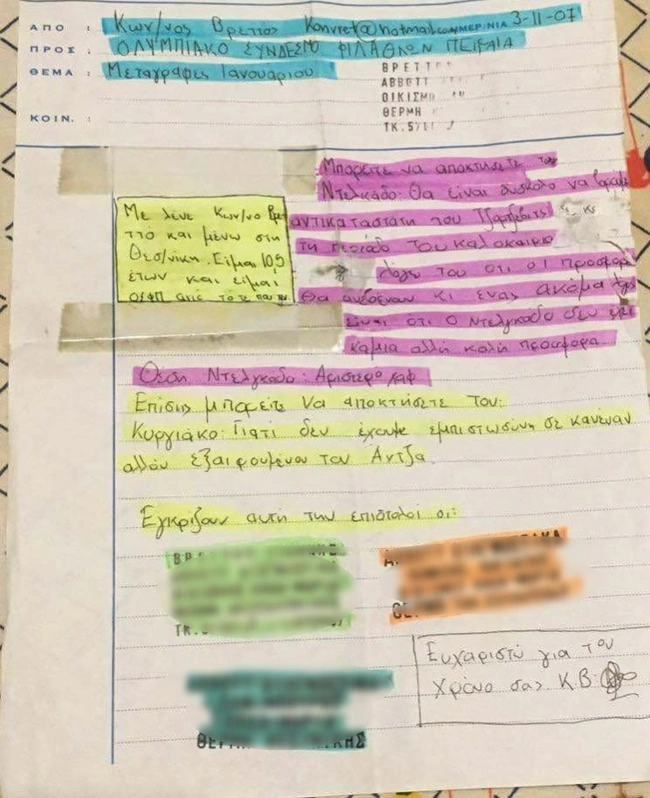 ΑΠΟ : Κων/νος Βρεττος Konvret@hotmail.com ΗΜΕΡ/ΝΙΑ 3-11-07
ΠΡΟΣ : ΟΛΥΜΠΙΑΚΟ ΣΥΝΔΕΣΜΟ ΦΙΛΑΘΛΩΝ ΠΕΙΡΑΙΑ
ΘΕΜΑ : Μεταγραφες Ιανουαριου
ΚΟΙΝ. :
ΒΡΕΤΤ
ΑΒΒΟΤΤ
ΟΙΚΙΣΜ
ΘΕΡΜΗ
ΤΚ.57
Με λένε Κων/νο Βρε
ττό και μένω στη
Θεσ/νικη. Είμαι 10,5
έτων και είμαι
ΟΣΦΠ από τοτε που
Μπορειτε να αποκτησετε τον
Ντελκαδο: Θα ειναι δυσκολο να βρουμε
αντικαταστατη του Τζορτζεβιτς
τη περιοδο του καλοκαιριο
λόγω του ότι οι προσφορ
Θα αυξάνουν κι ενας ακόμα
είναι ότι ο Ντελγκαδο δεν εχει
καμια αλλη καλη προσφορα
Θεση Ντελγκαδο: Αριστερο χαφ
Επίσης μπορείτε να αποκτήσετε τον:
Κυργιάκο: Γιατί δεν έχουμε εμπιστωσύνη σε κανέναν
αλλόν εξαιρουμένου τον Αντζα.
Εγκρίζουν αυτή την επιστολοί οι:
ΤΚ.
Ευχαριστώ για τον
χρόνο σας Κ.Β.